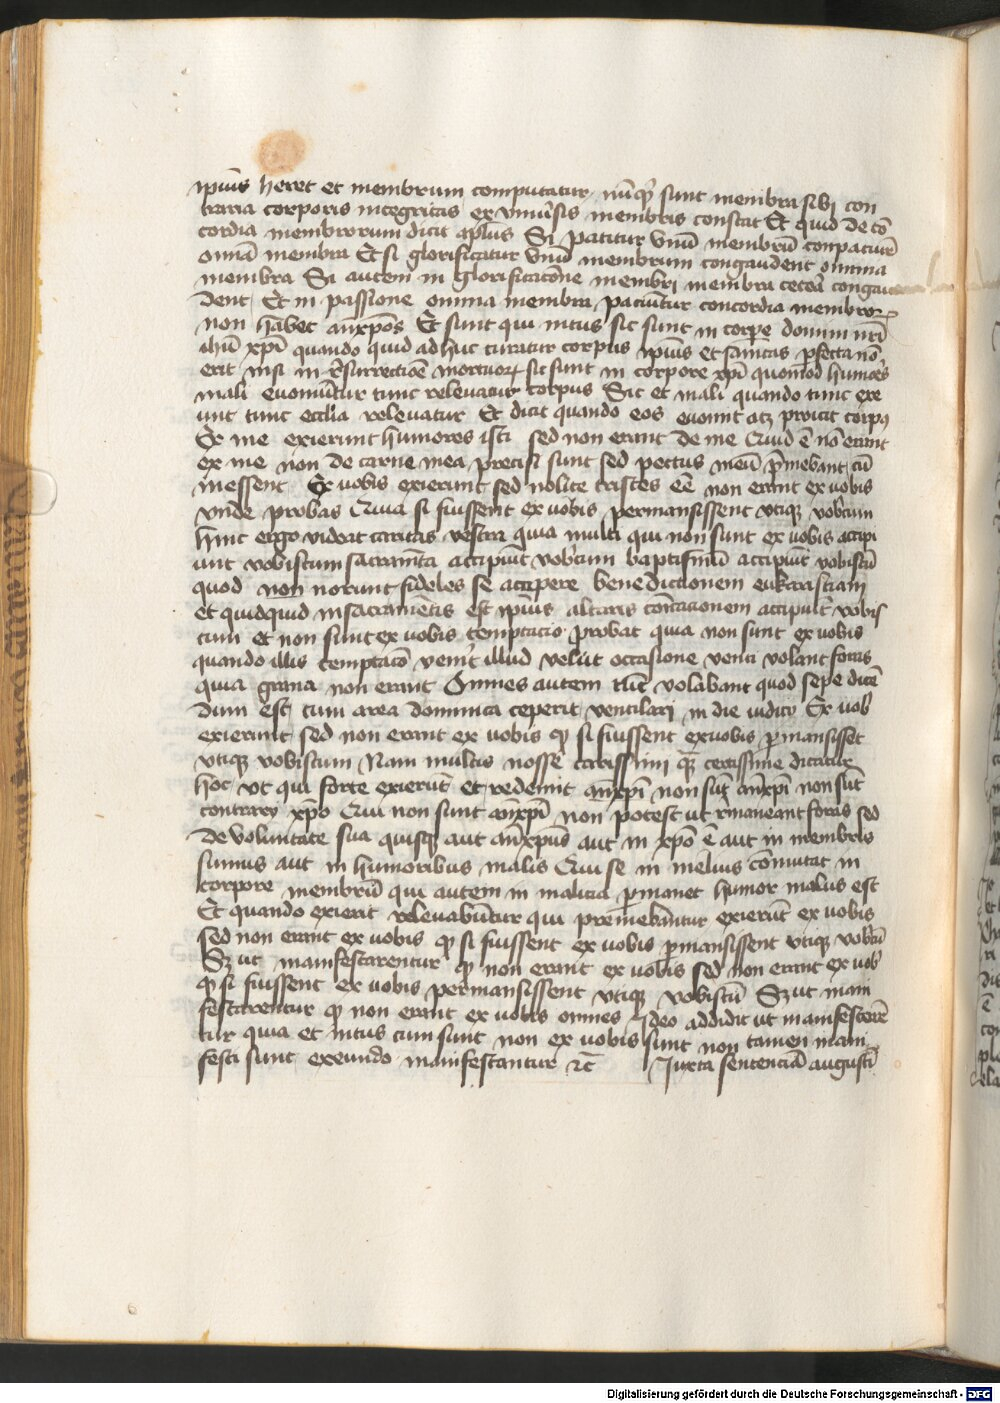 ip̄ius heret et membrum computatur nūqͥ sunt membra sibi con
traria corporis integritas ex vniūsis membris constat Et quid de cō
cordia membrorum dicit apl̄us Si patitur vnū membrū conpaciūr̄
omīa membra Et si glorificatur vnū membrum congaudent omnia
membra Si autem in glorificac̄one membri membra cetera congau
dent Et in passione omnia membra paciūtur concordia membroꝝ
non habet antixp̄os Et sunt qui intus sic sunt in corpe domini nr̄i
ihū xp̄i quando quid ad huc curatur corpus ip̄ius et sanitas pfecta nō
erit nisi in r̄surrectiōe mortuoꝝ sic sunt in corpore xp̄i quomod̄ humōes
mali euomūtur tunc releuatur corpus Sic et mali quando tunc exe
unt tunc ecclīa releuatur Et dicit quando eos euomit atꝫ proicit corpꝰ
Ex me exierunt humores isti sed non erant de me Quid ē nō erant
ex me non de carne mea precisi sunt sed pectus meū p̄mebant cū
inessent Ex uobis exierunt sed nolite tristes eē non erant ex uobis
vnde probas Quia si fuissent ex uobis permansissent vtiqꝫ vobiscum
hinc ergo videat caritas vestra quia multi qui non sunt ex uobis accipi
unt vobiscum sacramēta accipiūt vobiscum baptismū accipiūt vobiscū
quod non norunt fideles se accipere benedictionem eukaristiam
et quidquid in sacramētis est ip̄ius altaris cōīcacionem accipiūt vobis
cum et non sunt ex uobis temptacio probat quia non sunt ex uobis
quando illis temptacō venīt illud velut occasione venti volant foras
quia grana non erant Omnes autem tūc volabunt quod sepe dicē
dum est cum area dominica ceperit ventilari in die iudicij Ex uob̄
exierunt sed non erant ex uobis qͥ si fuissent ex uobis p̄mansissēt
vtiqꝫ vobiscum Nam multis nosse carissimi qͣ certissime dicatur
hoc vt qui forte exierūt et redeunt antixp̄i non sūt antixp̄i non sūt
contrarij xp̄o Qui non sunt antixp̄i non potest ut r̄maneant foras sed
de voluntate sua quisqꝫ aut antixp̄us aut in xp̄o ē aut in membris
sumus aut in humoribus malis Qui se in melius cōmutat in
corpore membrū qui autem in malicia p̄manet humor malus est
Et quando exierit releuabūtur qui premebantur exierūt ex uobis
sed non erant ex uobis qͥ si fuissent ex uobis p̄mansissent vtiqꝫ vobiscū
Sꝫ ut manifestarentur qͥ non erant ex uobis sed non erant ex uob̄
qͥ si fuissent ex uobis permansissent vtiqꝫ vobiscū Sꝫ ut mani
festarentur qͥ non erant ex uobis omnes Ideo addidit ut manifestarē
tur quia et intus cum sunt non ex uobis sunt non tamen mani
festi sunt exeundo manifestantur ꝛc̄ Iuxta sentenciā augustī
Digitalisierung gefördert durch die Deutsche Forschungsgemeinschaft - DFG